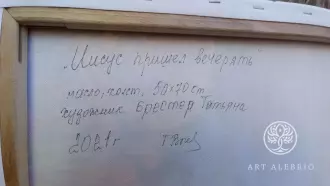 "Иисус пришел вечерять"
масло, холст, 50х70см
художник Брестер Татьяна
2021г
ART ALEBRIO